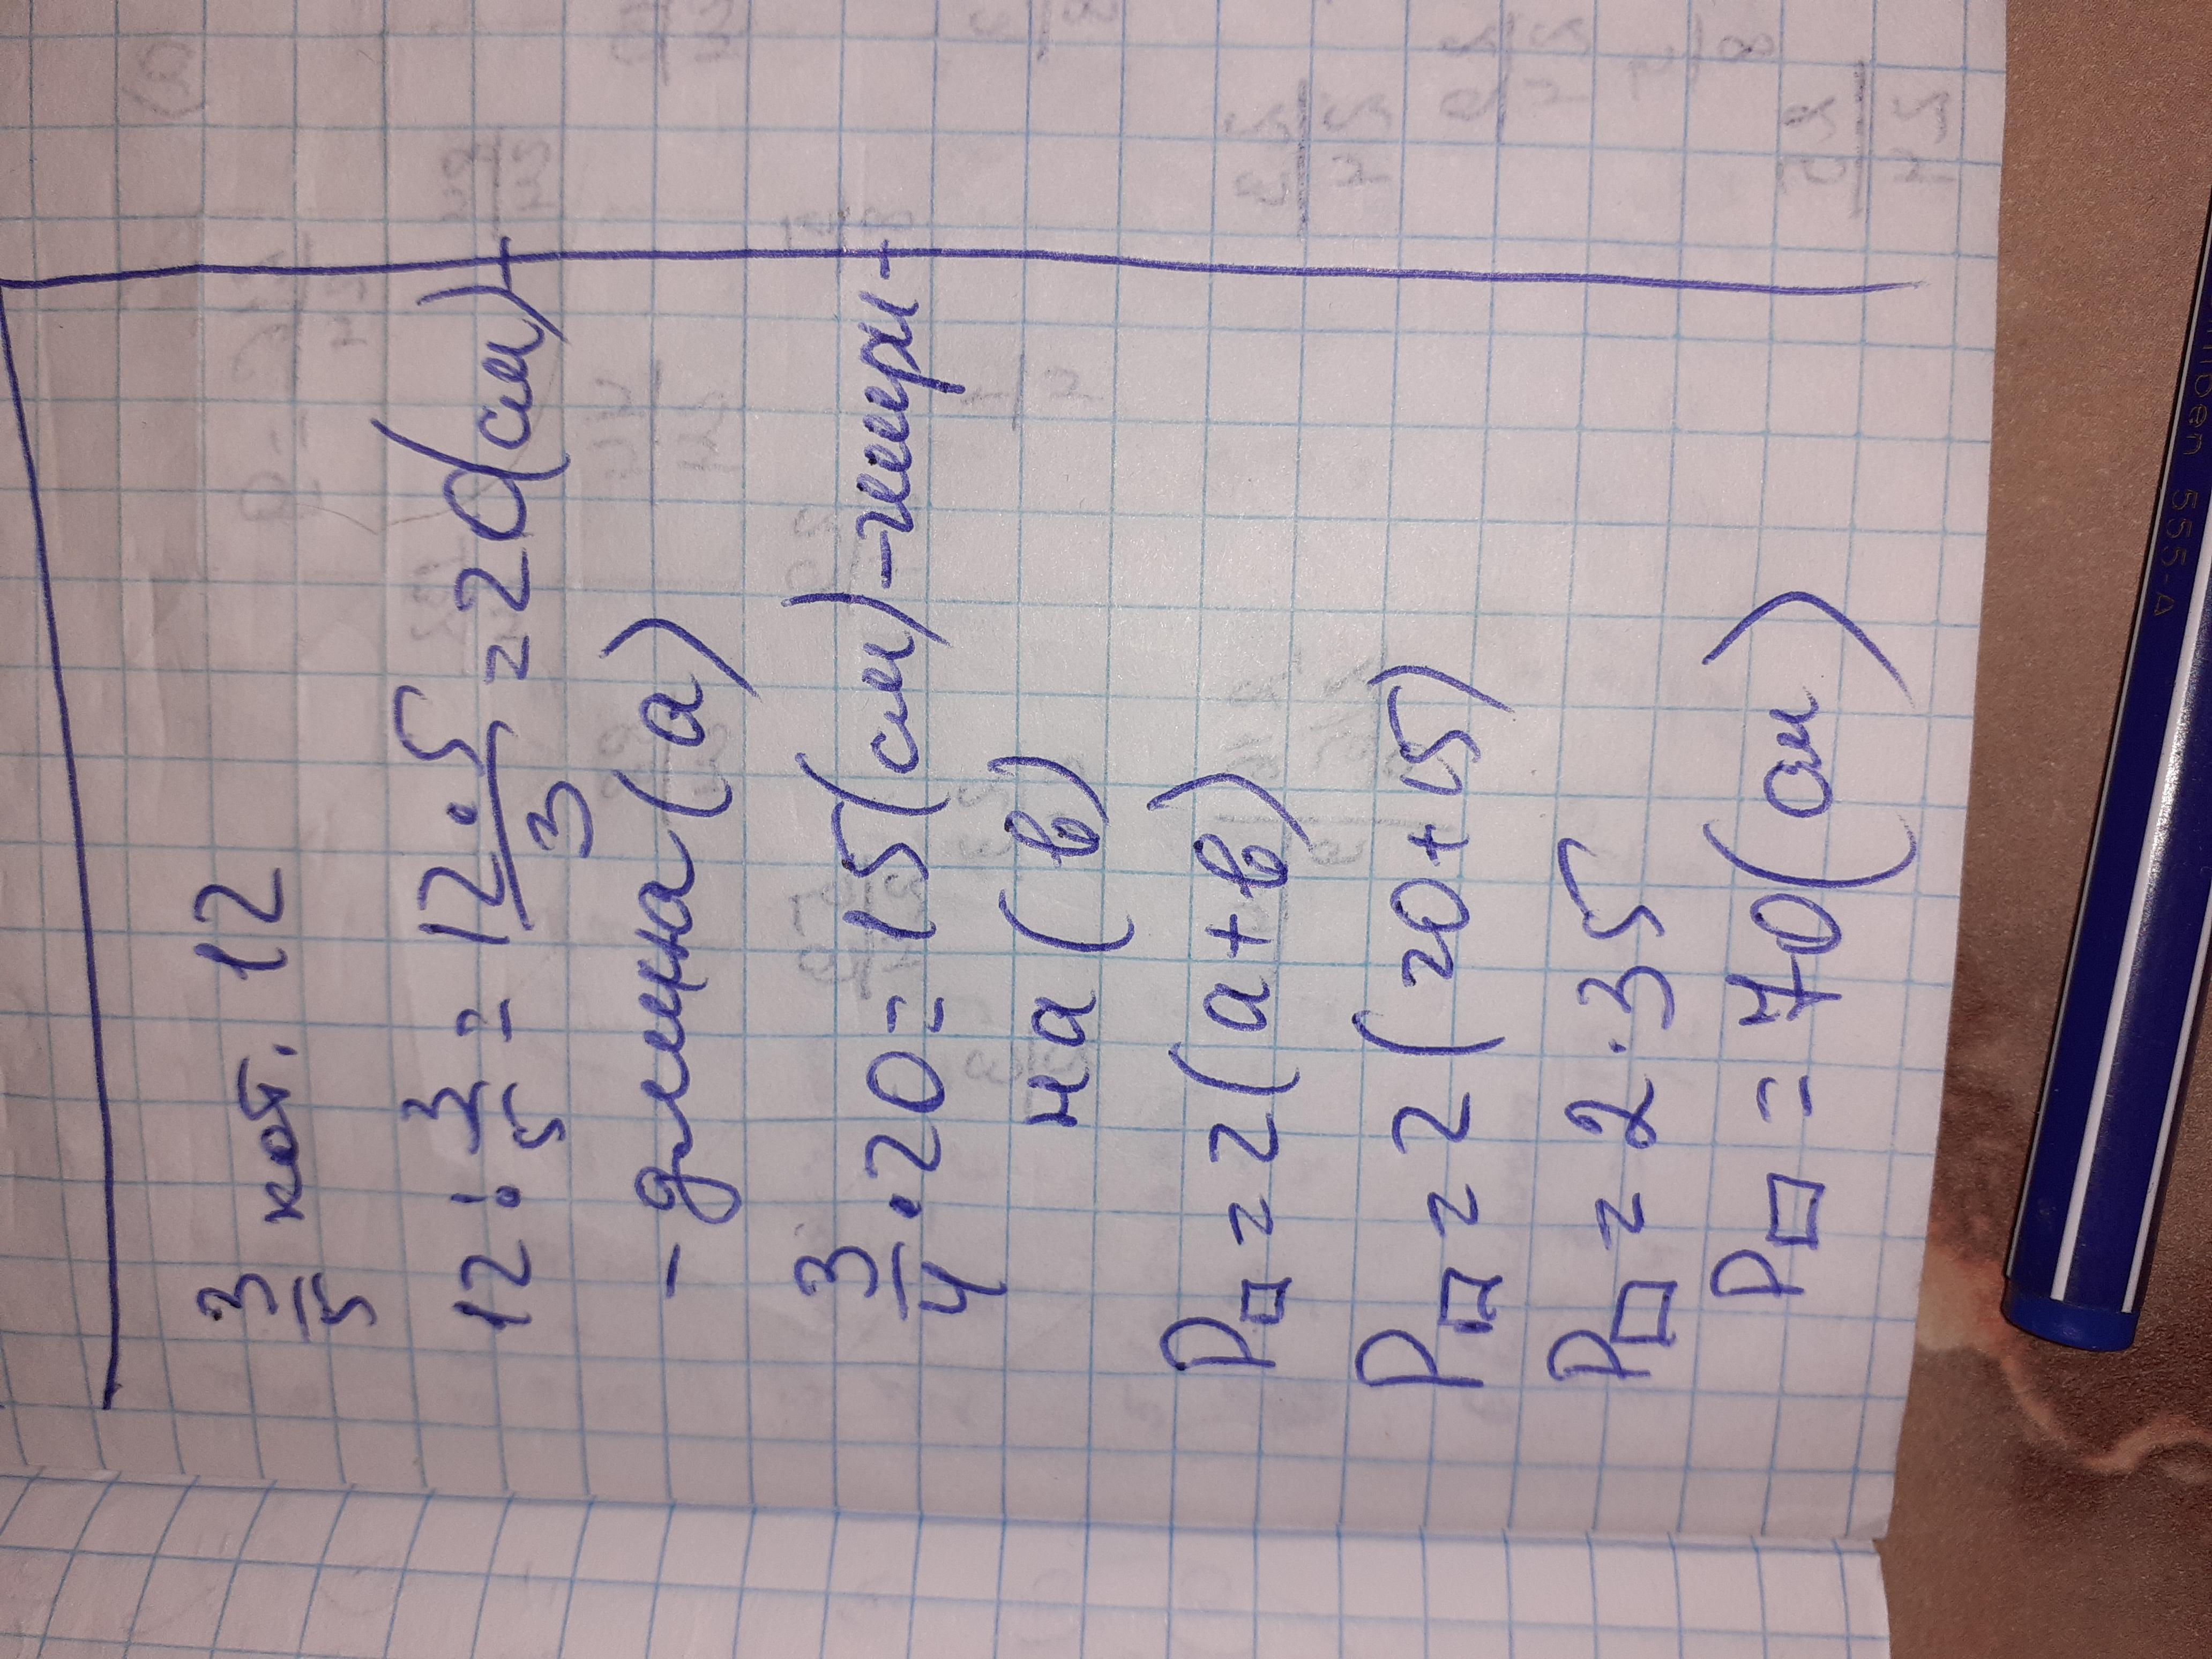 3/5 кот. 12
12 : 3/5 = 12·5/3 = 20(см) -
- длина (а)
3/4 · 20 = 15 (см) - шири -
на (в)
P□ = 2 (а + в)
P□ = 2 (20 + 15)
P□ = 2 · 35
P□ = 70 (см)
555-A